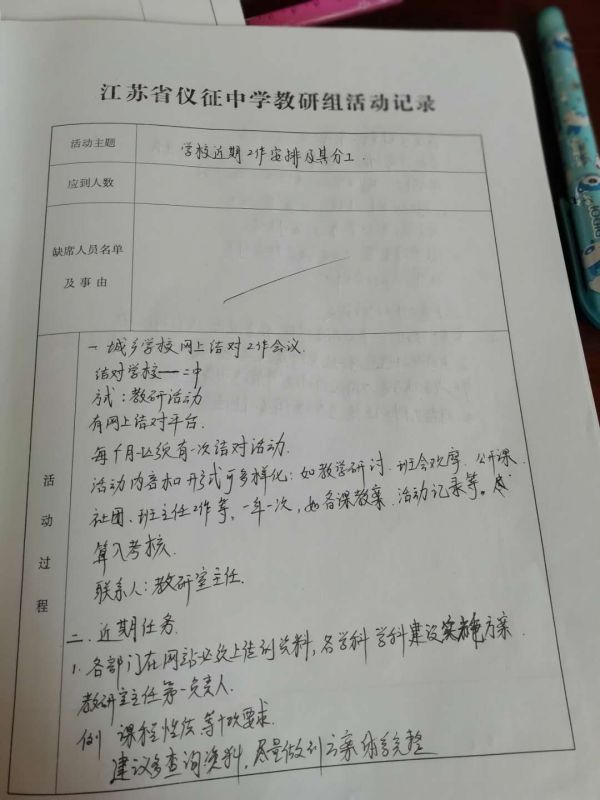 江苏省仪征中学教研组活动记录
活动主题
学校近期工作安排及其分工.
应到人数
缺席人员名单
及事由
活动过程
一 城乡学校网上结对工作会议.
结对学校——二中
方式:教研活动
有网上结对平台.
每个月必须有一次结对活动.
活动内容和形式可多样化:如教学研讨.班会观摩.公开课.
社团.班主任工作等.一年一次,如备课教案.活动记录等。
算入考核.
联系人:教研室主任.
二.近期任务.
1.各部门在网站必须上传到资料,各学科学科建设实施方案.
教研室主任第一负责人.
例 课程 等 要求.
建议多查询资料,尽量做到方案 完整